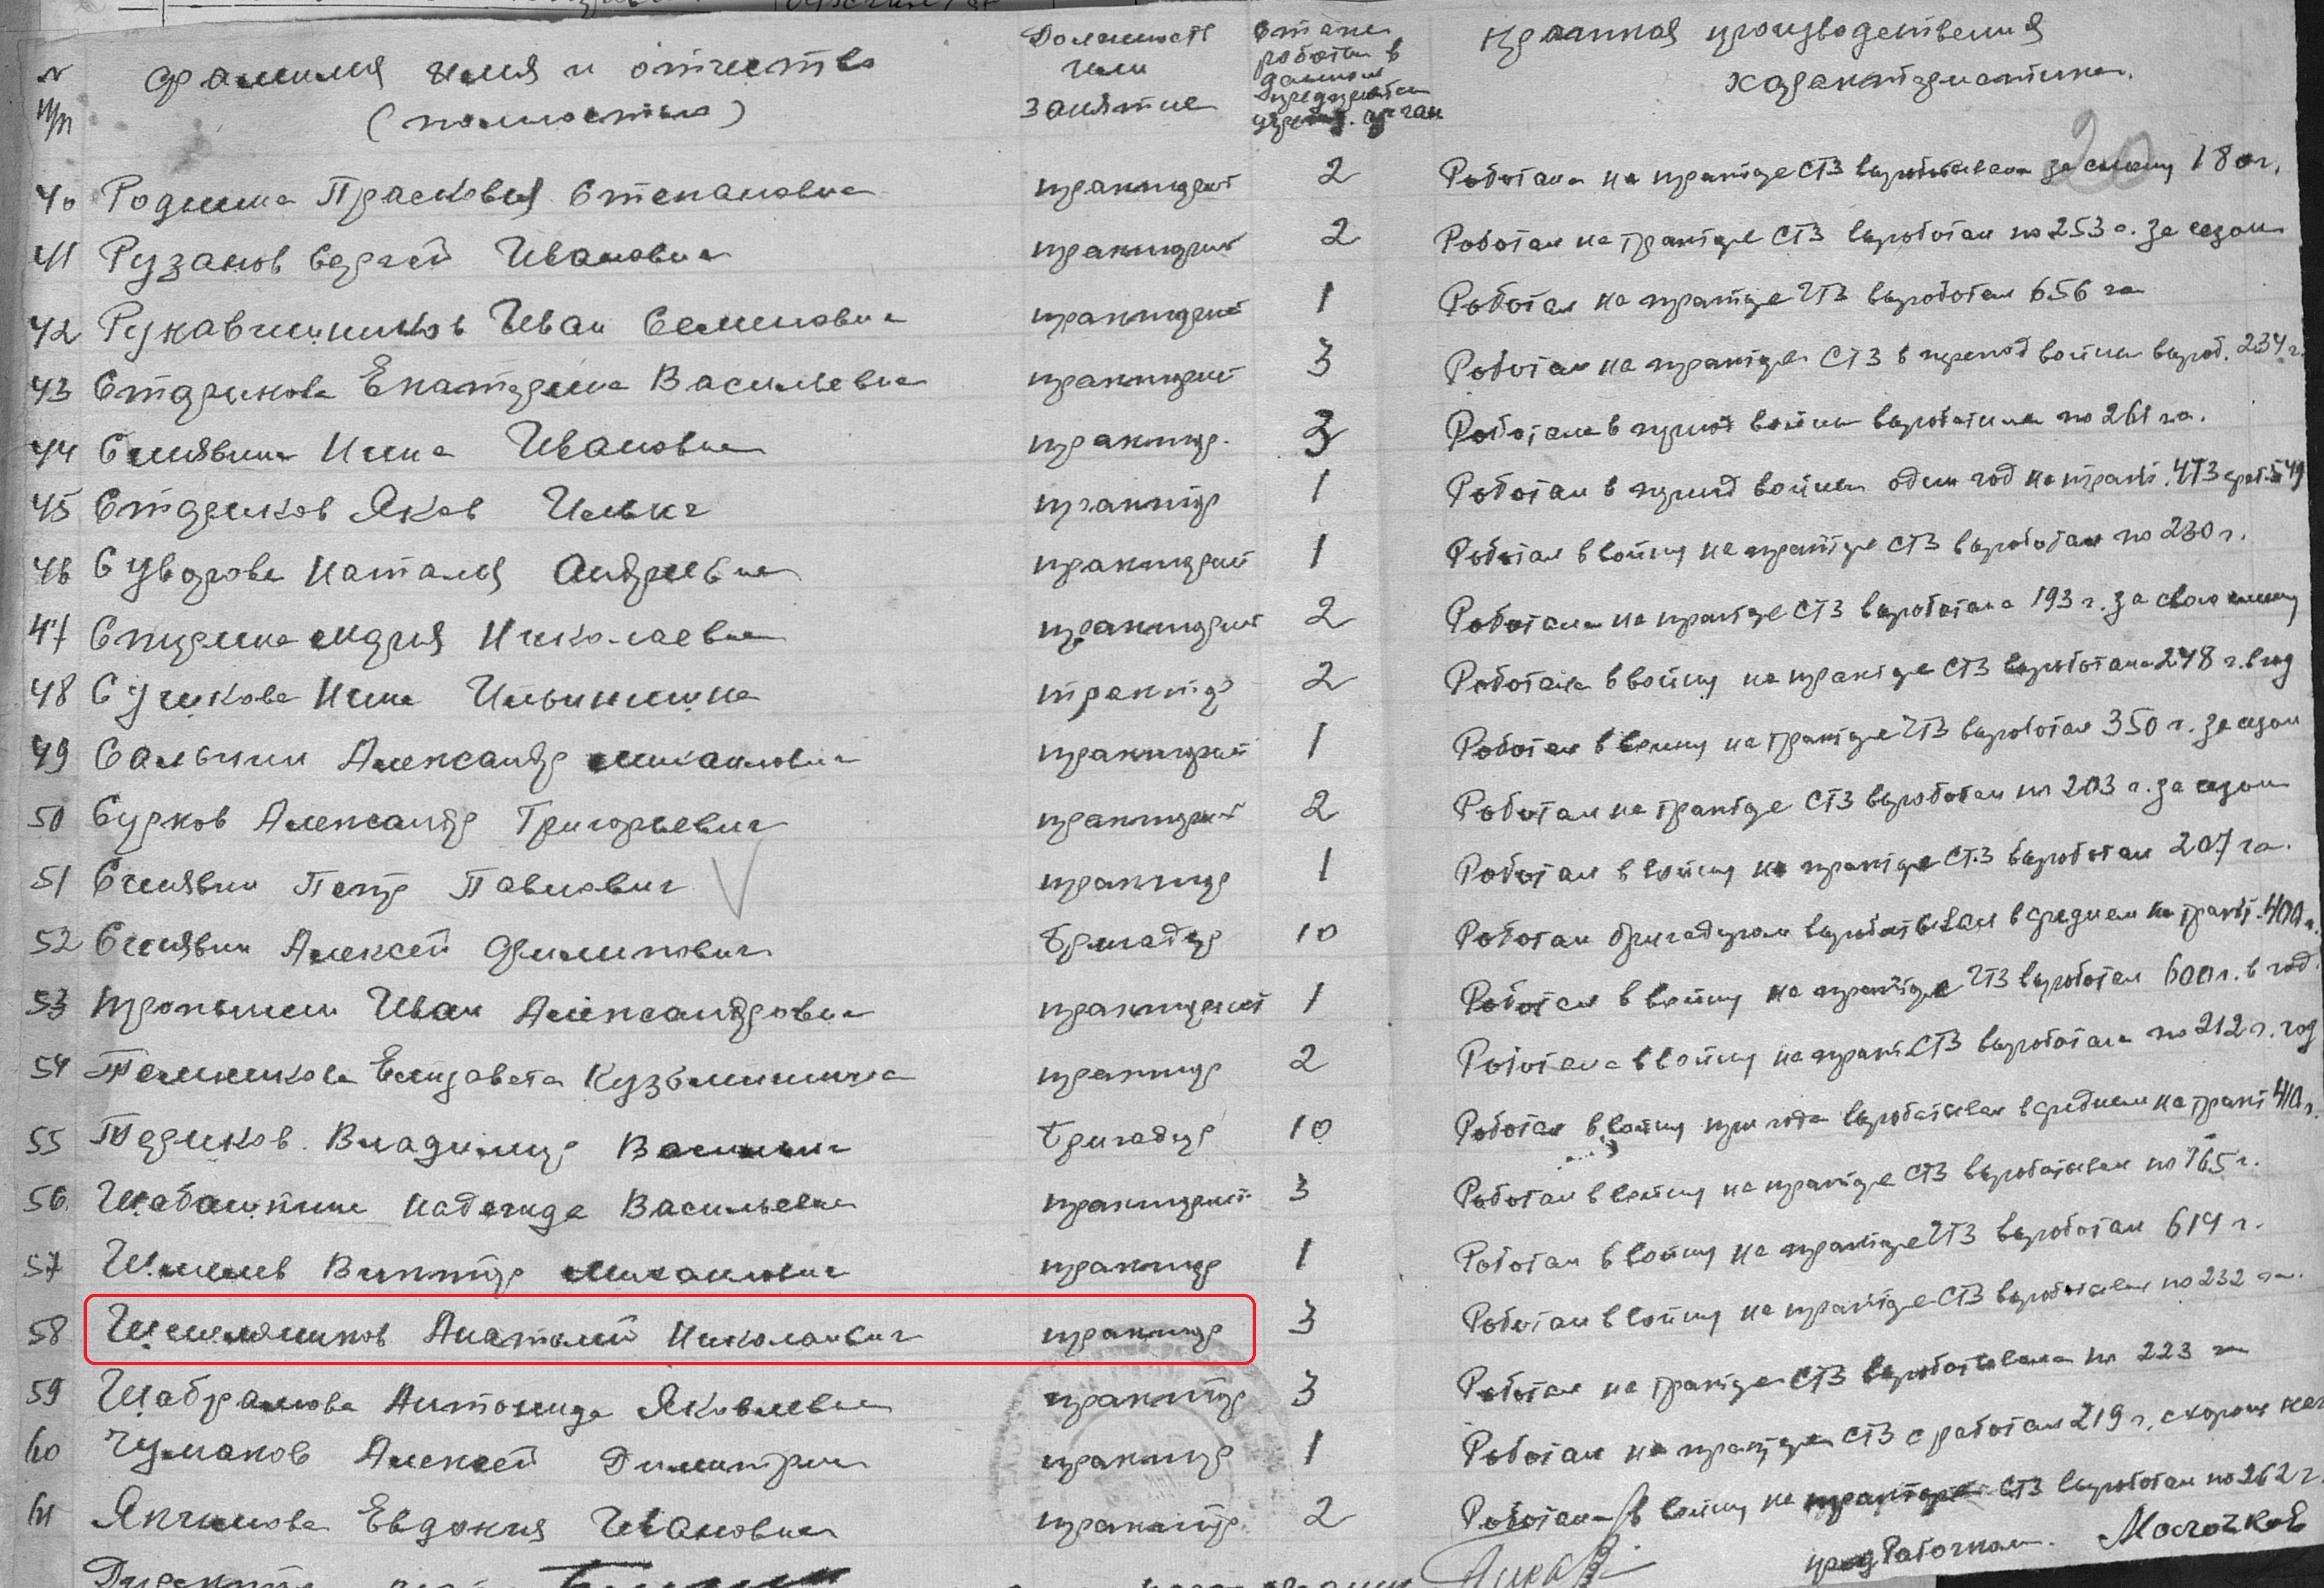 № п/п Фамилия имя и отчество (полностью) Должность или занятие Краткая производственная характеристика.
20
40 Родина Прасковья Степановна тракторист 2 Работала на тракторе СТЗ вырабатывала за смену 180 г.
41 Рузанов Сергей Иванович тракторист 2 Работал на тракторе СТЗ выработал по 253 г. за сезон
42 Рукавишников Иван Семенович тракторист 1 Работал на тракторе ЧТЗ выработал 656 га
43 Старикова Екатерина Васильевна тракторист 3 Работал на тракторе СТЗ в период войны выраб. 234 г.
44 Синявина Нина Ивановна трактор. 3 Работала в период войны выработала по 261 га.
45 Стариков Яков Ильич трактор 1 Работал в период войны один год на тракт. ЧТЗ
46 Суворова Наталья Андреевна тракторист 1 Работал в войну на тракторе СТЗ выработал по 230 г.
47 Спирина Мария Николаевна тракторист 2 Работала на тракторе СТЗ выработала 193 г. за свою смену
48 Сучкова Нина Ильинична трактор 2 Работала в войну на тракторе СТЗ выработала 248 г. в год
49 Сальнин Александр Михайлович тракторист 1 Работал в войну на тракторе ЧТЗ выработал 350 г. за сезон
50 Сурков Александр Григорьевич тракторист 2 Работал на тракторе СТЗ выработал по 203 г. за сезон
51 Синявин Петр Павлович трактор 1 Работал в войну на тракторе СТЗ выработал 207 га.
52 Синявин Алексей Филипович Бригадир 10 Работал бригадиром вырабатывал в среднем на тракт. 400 г.
53 Тропынин Иван Александрович тракторист 1 Работал в войну на тракторе ЧТЗ выработал 600 г. в год.
54 Темникова Елизавета Кузьминична трактор 2 Работала в войну на тракт. СТЗ выработала по 212 г. год
55 Териков Владимир Васильич Бригадир 10 Работал в войну три года вырабатывал в среднем на тракт 410 г.
56 Шабашкина Надежда Васильевна тракторист 3 Работал в войну на тракторе СТЗ вырабатывал по 165 г.
57 Виктор Михайлович трактор 1 Работал в войну на тракторе ЧТЗ выработал 614 г.
58 Шемякинов Анатолий Николаевич трактор 3 Работал в войну на тракторе СТЗ вырабатывал по 232 га.
59 Шабрамова Антонида Яковлевна трактор 3 Работал на тракторе СТЗ вырабатывала по 223 га
60 Чумаков Алексей Димитрич трактор 1 Работал на тракторе СТЗ сработал 219 г.
61 Япчинова Евдокия Ивановна трактор. 2 Работала в войну на тракторе СТЗ выработал по 262 г.
пред Рабочком. Молочков